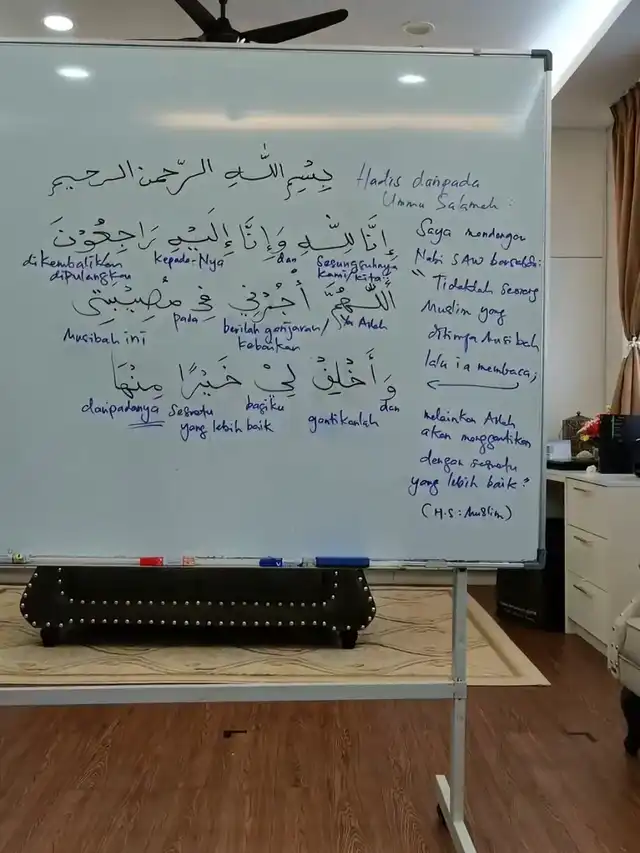 بِسْمِ اللهِ الرَّحْمٰنِ الرحيم
إِنَّا لِلّٰهِ وَإِنَّا إِلَيْهِ رَاجِعُوْنَ
dikembalikan kepada-Nya dan sesungguhnya
dipulangkan kami/kita
اَللّٰهُمَّ أْجُرْنِي فِي مُصِيْبَتِي
Musibah ini pada berilah ganjaran/ Ya Allah
kebaikan
وَأَخْلِفْ لِيْ خَيْرًا مِنْهَا
daripadanya sesuatu bagiku gantikanlah dan
yang lebih baik
Hadis daripada
Ummu Salamah:
Saya mendengar
Nabi SAW bersabda:
"Tidaklah seorang
Muslim yang
ditimpa musibah
lalu ia membaca;
melainkan Allah
akan menggantikan
dengan sesuatu
yang lebih baik"
(H.S: Muslim)